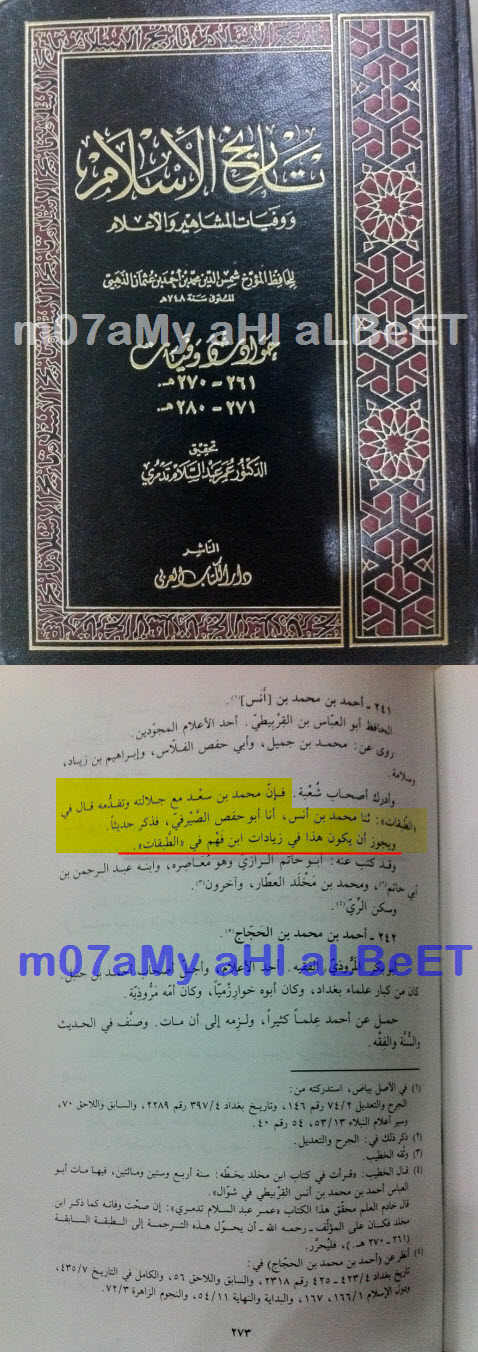 تاريخ الإسلام
ووفيات المشاهير والأعلام
للحافظ المؤرخ شمس الدين محمد بن أحمد بن عثمان الذهبي
المتوفى سنة ٧٤٨هـ
m07aMy aHl aLBeET
حوادث ووفيات
٢٦١ - ٢٧٠ هـ.
٢٧١ - ٢٨٠ هـ.
تحقيق
الدكتور عمر عبد السلام تدمري
الناشر
دار الكتاب العربي
٢٤١ - أحمد بن محمد بن [أنس](١).
الحافظ أبو العباس بن القِرْبِيطيّ. أحد الأعلام المجوّدين.
روى عن: محمد بن جميل، وأبي حفص الفلّاس، وإبراهيم بن زياد،
وسلامة.
وأدرك أصحاب شُعْبة. فإنّ محمد بن سعْد مع جلالته وتقدُّمه قال في
«الطَّبقات»: ثنا محمد بن أنس، أنا أبو حفص الصَّيْرفيّ، فذكر حديثاً.
ويجوز أن يكون هذا في زيادات ابن فَهْم في «الطَّبقات».
وقد كتب عنه: أبو حاتم الرازيّ وهو مُعَاصره، وابنه عبد الرحمن بن
أبي حاتم(٢)، ومحمد بن مَخْلَد العطّار، وآخرون(٣).
وسكن الرِّيّ(٤).
٢٤٢ - أحمد بن محمد بن الحَجّاج(٥).
m07aMy aHl aLBeET
أبو بكر المَرُّوذِيّ الفقيه. أحد الأعلام، وأجلّ أصحاب أحمد بن حنبل.
كان من كبار علماء بغداد، وكان أبوه خوارزميّاً، وكان أمّه مَرُّوذيّة.
حمل عن أحمد عِلماً كثيراً، ولزِمه إلى أن مات. وصنَّف في الحديث
والسُّنَّة والفِقْه.
(١) في الأصل بياض، استدركته من:
الجرح والتعديل ٧٤/٢ رقم ١٤٦، وتاريخ بغداد ٣٩٧/٤ رقم ٢٢٨٩، والسابق واللاحق ٧٠،
وسير أعلام النبلاء ٥٣/١٣، ٥٤ رقم ٤٠.
(٢) ذكر ذلك في: الجرح والتعديل.
(٣) وثّقه الخطيب.
(٤) قال الخطيب: «قرأت في كتاب ابن مخلد بخطّه: سنة أربع وستين ومائتين، فيها مات أبو
العباس أحمد بن محمد بن أنس القِرْبيطي في شوّال».
قال خادم العلم محقق هذا الكتاب «عمر عبد السلام تدمري»: إن صحّت وفاته كما ذكر ابن
مخلد فكان على المؤلّف - رحمه الله - أن يحوّل هذه الترجمة إلى الطبقة السابقة
(٢٦١ - ٢٧٠ هـ.)، فليُحرَّر.
(٥) أنظر عن (أحمد بن محمد بن الحجّاج) في:
تاريخ بغداد ٤٢٣/٤ - ٤٢٥ رقم ٢٣١٨، والسابق واللاحق ٥٦، والكامل في التاريخ ٤٣٥/٧،
ودول الإسلام ١٦٦/١، ١٦٧، والبداية والنهاية ٥٤/١١، والنجوم الزاهرة ٧٢/٣.
٢٧٣